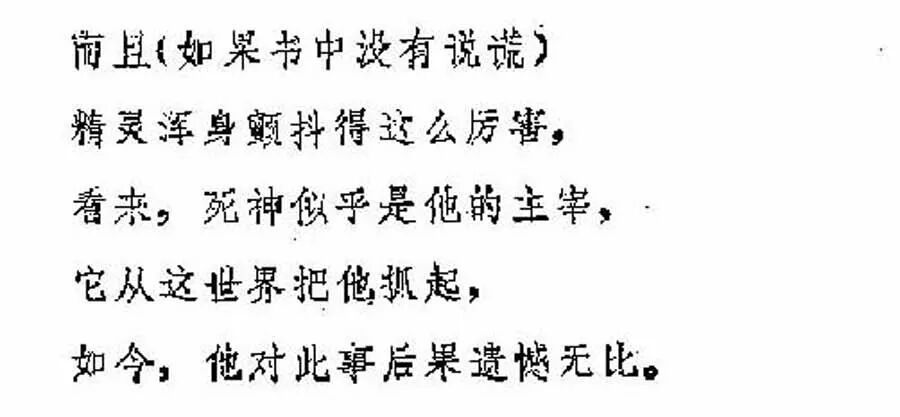 而且(如果书中没有说谎)
精灵浑身颤抖得这么厉害,
看来,死神似乎是他的主宰,
它从这世界把他抓起,
如今,他对此事后果遗憾无比。